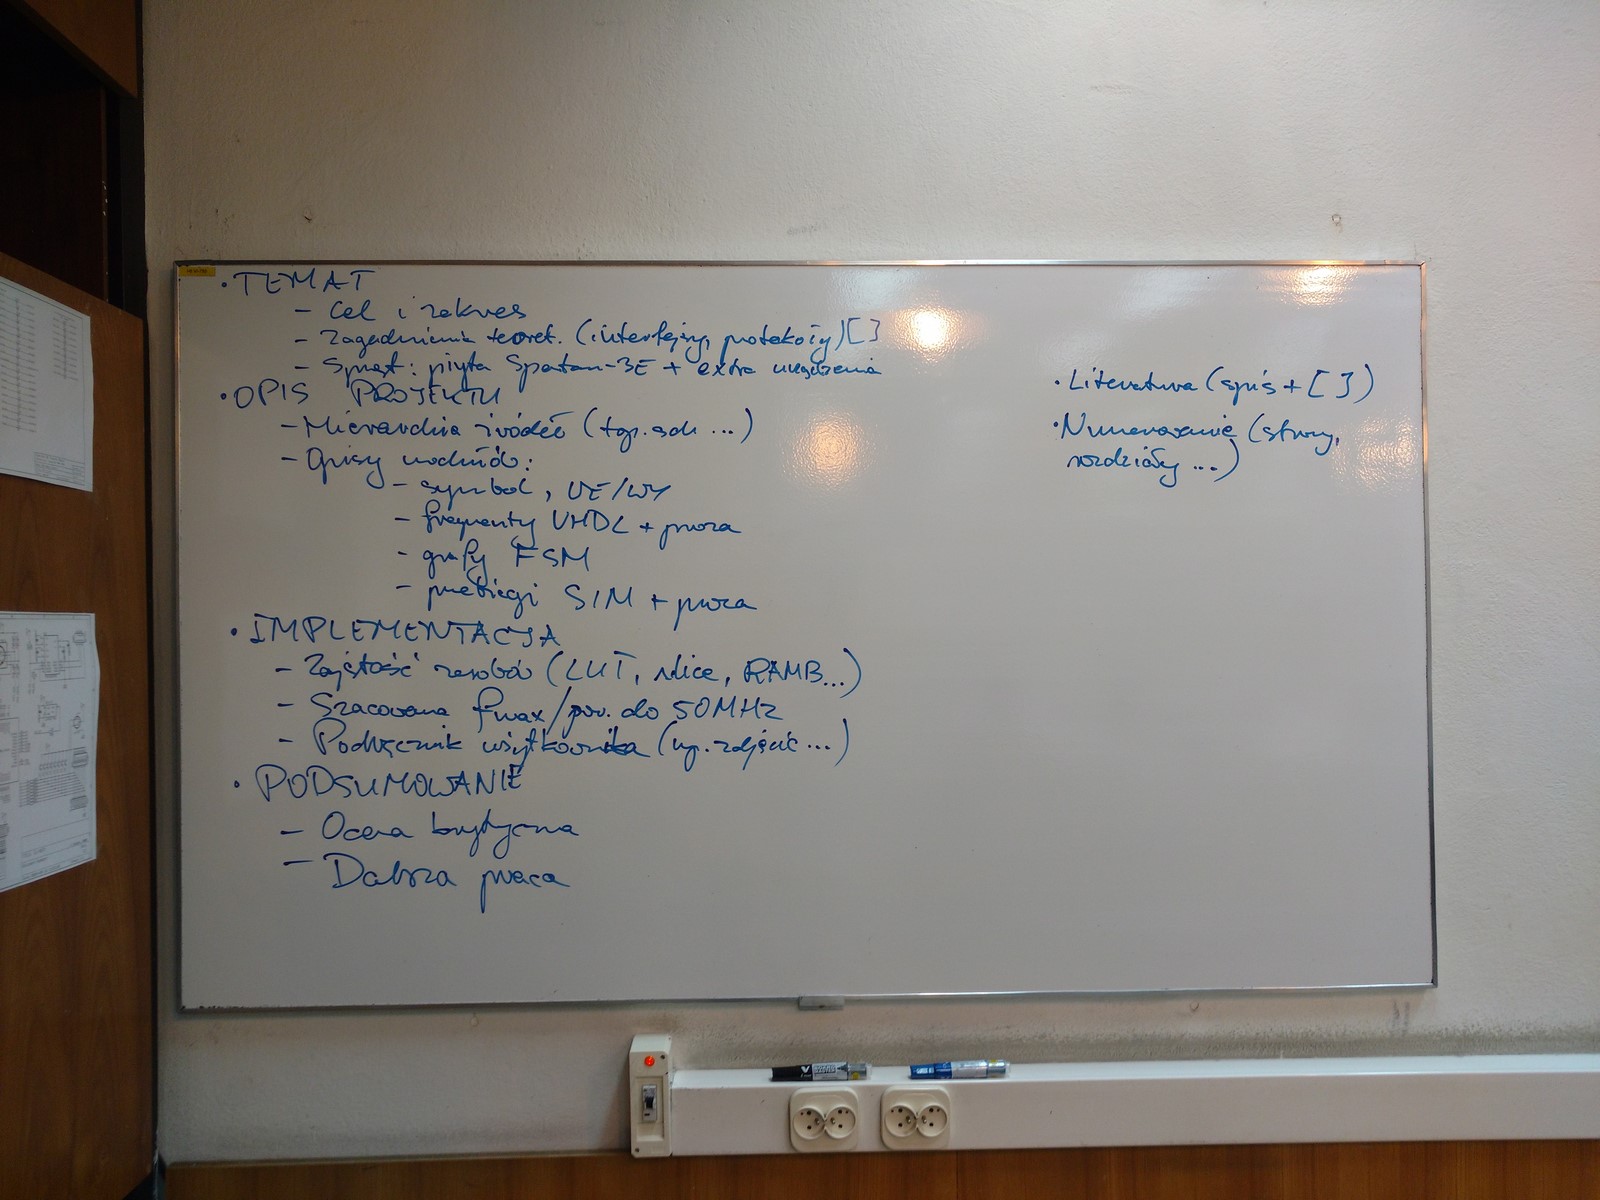 · TEMAT
- Cel i zakres
- Zagadnienia teoret. (interfejsy, protokoły) [ ]
- Sprzęt: płyta Spartan-3E + extra urządzenia
· OPIS PROJEKTU
- Hierarchia źródeł (top.sch ...)
- Opisy modułów:
- symbol, WE/WY
- fragmenty VHDL + proza
- grafy FSM
- przebiegi SIM + proza
· IMPLEMENTACJA
- Zajętość zasobów (LUT, slice, RAMB...)
- Szacowana fmax / por. do 50MHz
- Podręcznik użytkownika (np. zdjęcie ...)
· PODSUMOWANIE
- Ocena krytyczna
- Dalsza praca
· Literatura (spis + [ ])
· Numerowanie (strony,
rozdziały ...)